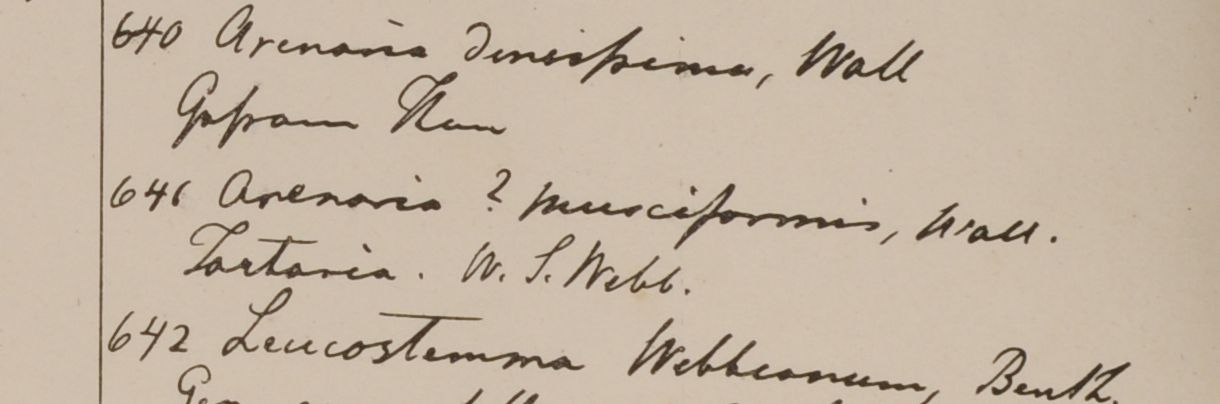 640 Arenaria densissima, Wall
Gossam Than
641 Arenaria ? musciformis, Wall.
Tartaria. W. S. Webb.
642 Leucostemma Webbianum, Benth.